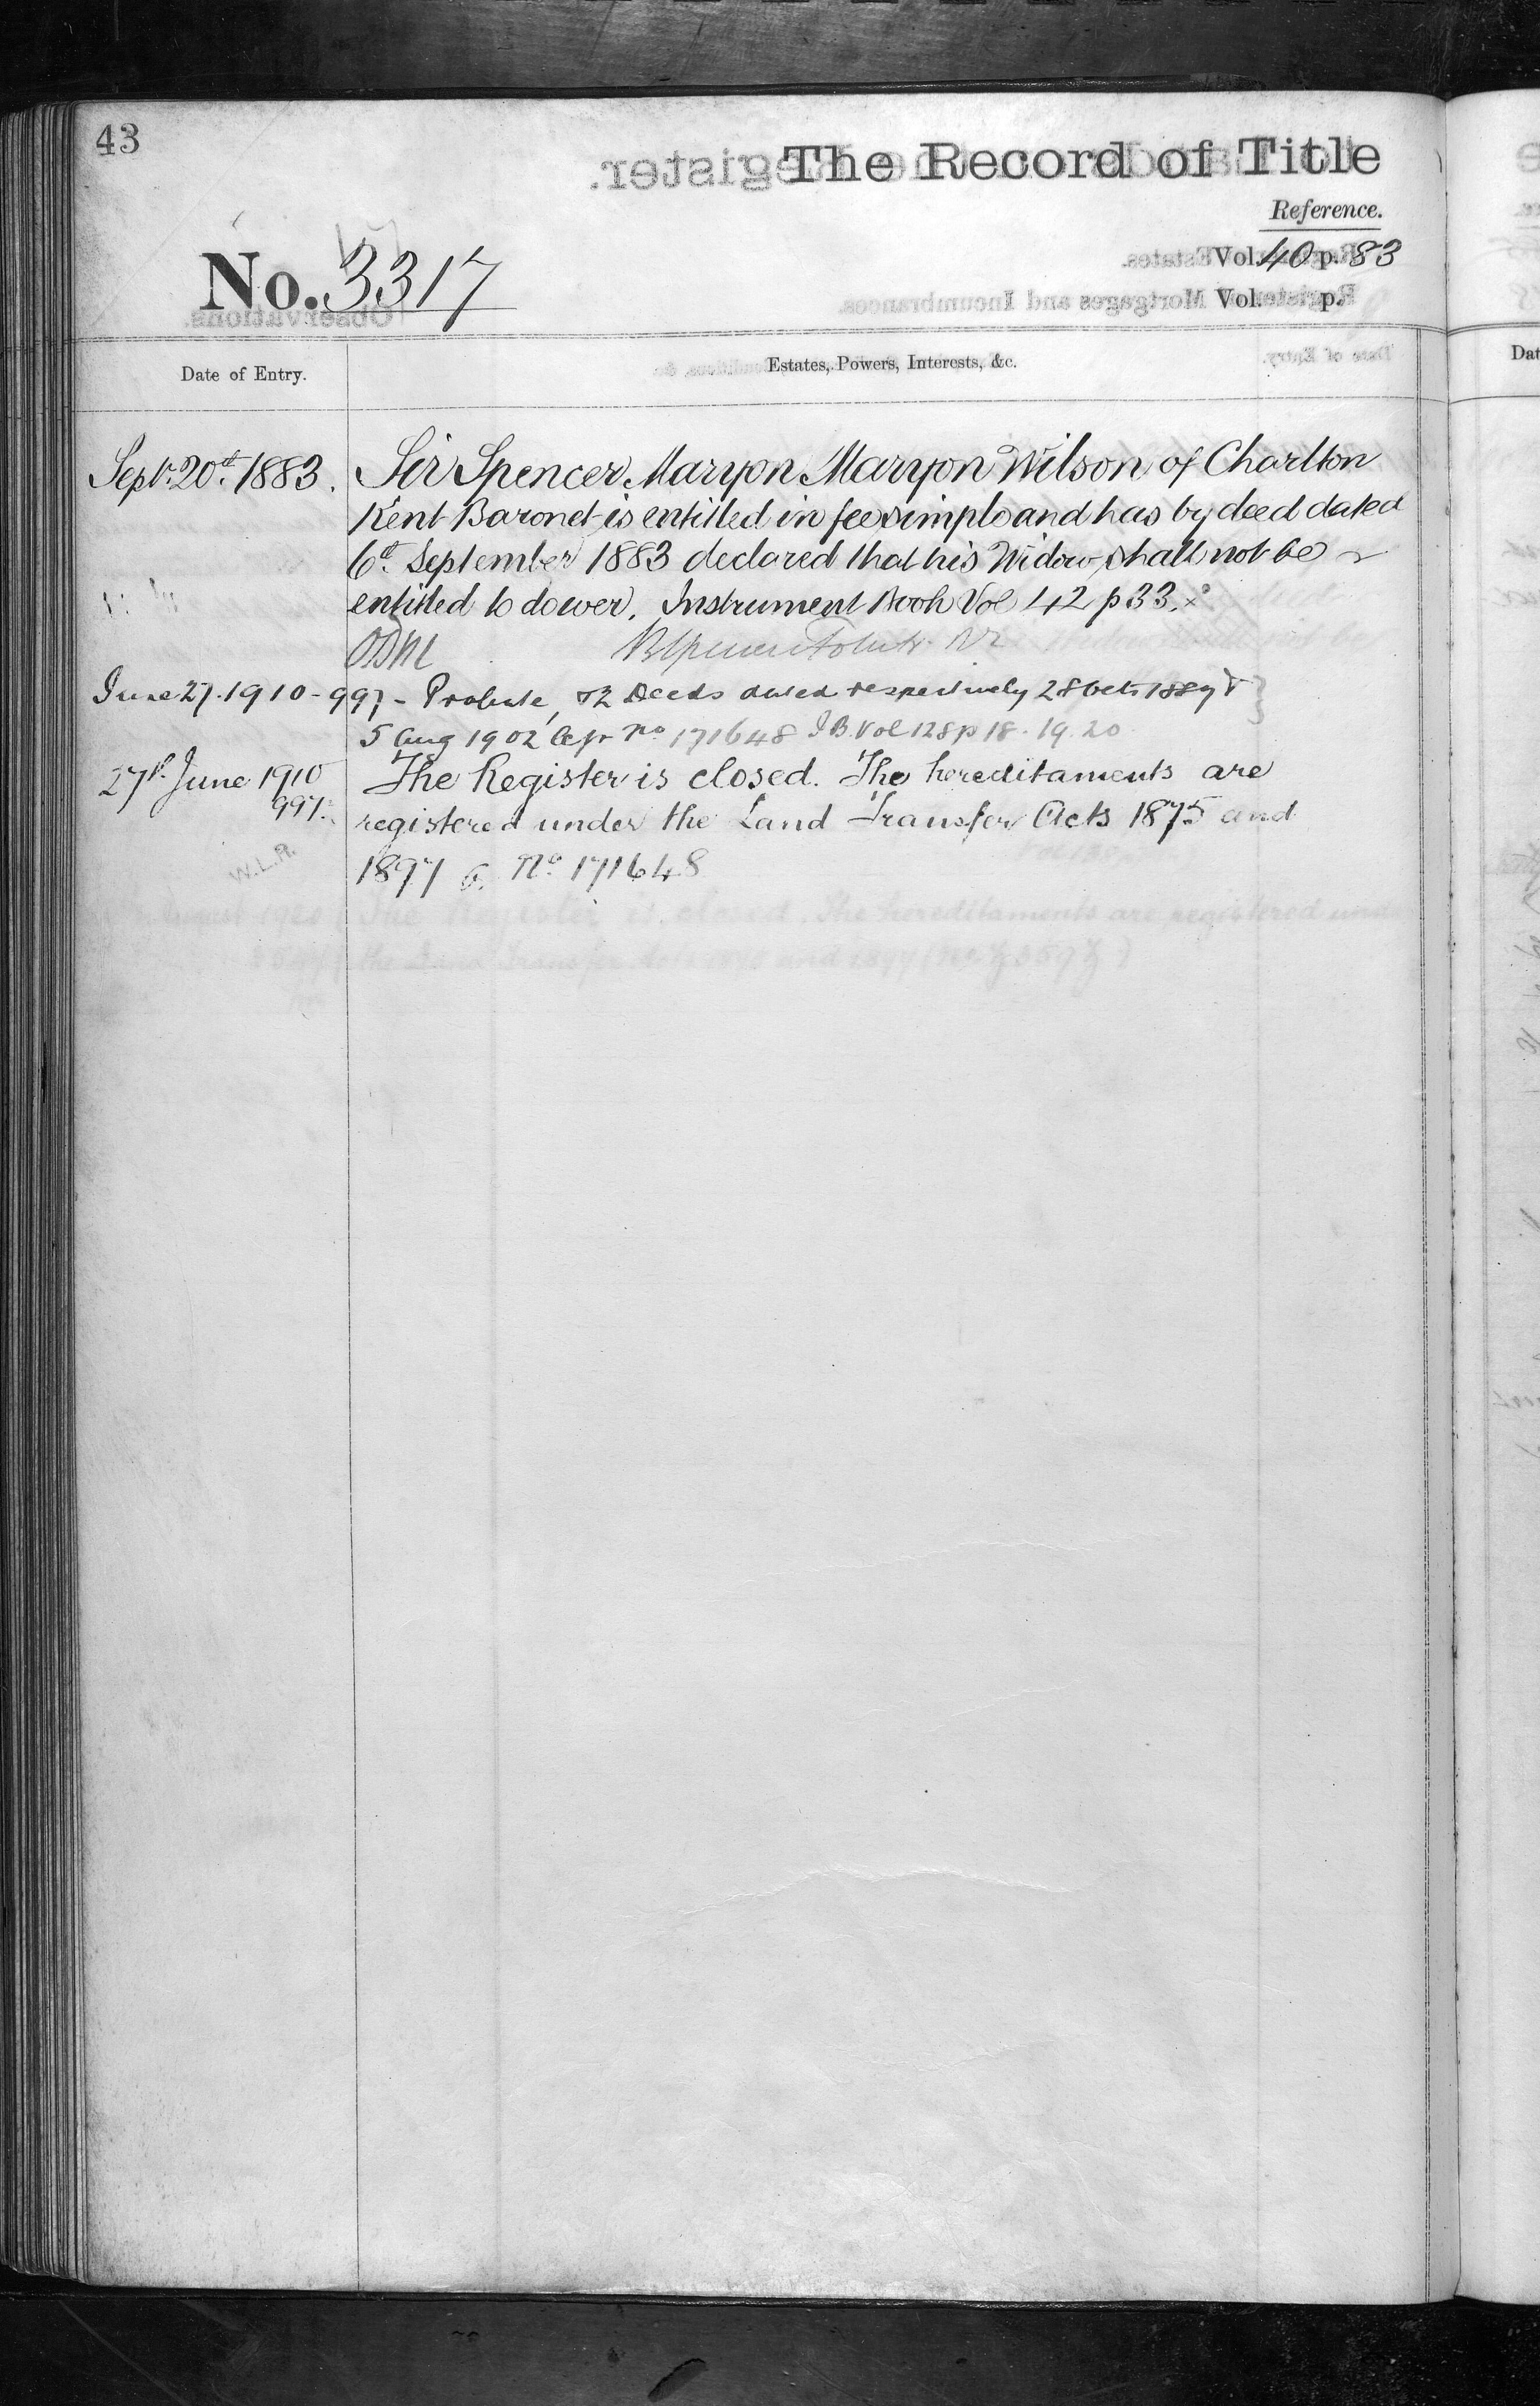 43
The Record of Title
Reference.
No. 3317
Vol. 40 p. 83
Vol. p.
Date of Entry.
Estates, Powers, Interests, &c.
Sept. 20th 1883. Sir Spencer Maryon Maryon Wilson of Charlton
Kent Baronet is entitled in fee simple and has by deed dated
6th September 1883 declared that his Widow shall not be
entitled to dower. Instrument Book Vol 42 p 33.
June 27. 1910 - 997 - Probate, & 2 Deeds dated respectively 28 Oct. 1889 &
5 Aug 1902 No 171648 I.B. Vol 128 p 18. 19. 20
27th June 1910 The Register is closed. The hereditaments are
997. registered under the Land Transfer Acts 1875 and
W.L.R. 1897 No. 171648